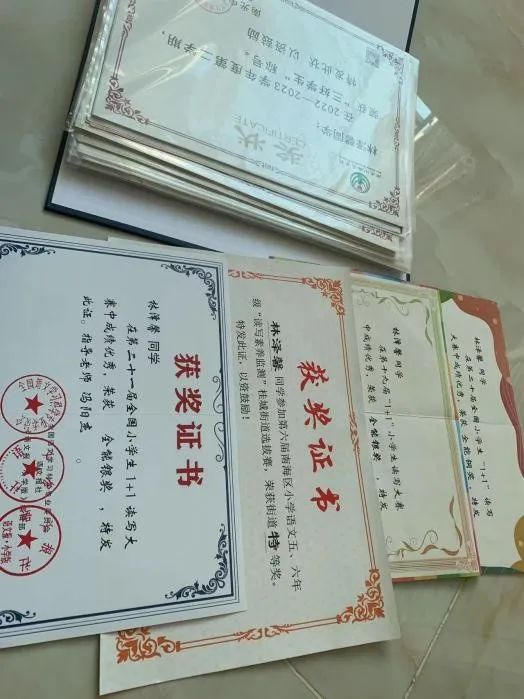 奖状
CERTIFICATE
林泽馨同学:
在2022—2023学年度第二学期,
荣获“三好学生”称号。
特发此状 以资鼓励
获奖证书
林泽馨 同学
在第二十一届全国小学生1+1读写大
赛中成绩优秀,荣获 全能银奖 ,特发
此证。指导老师 冯阳杰。
语文报·小学版
获奖证书
林泽馨 同学参加第六届南海区小学语文五、六年
级“读写素养监测”桂城街道选拔赛,荣获街道 特 等奖。
特发此证,以资鼓励!
林泽馨 同学
在第十九届“1+1”小学生读写大赛
中成绩优秀,荣获 全能银奖 ,特发
林泽馨 同学
在第二十届全国小学生“1+1”读写
大赛中成绩优秀,荣获 全能铜奖 ,特发